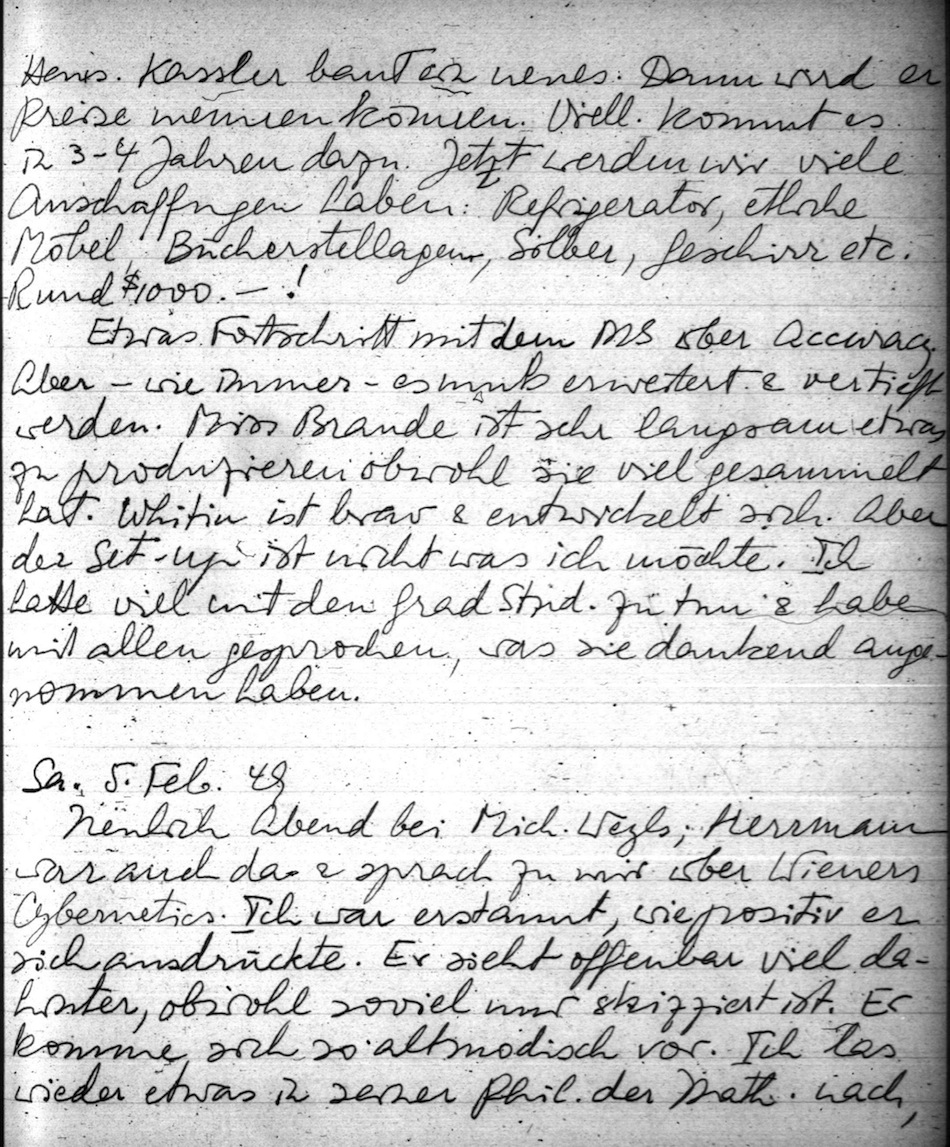 Hens. Kassler baut ein neues. Dann wird er
Preise nennen können. Viell. kommt es
in 3-4 Jahren dazu. Jetzt werden wir viele
Anschaffungen haben: Refrigerator, etliche
Möbel, Bücherstellagen, Silber, Geschirr etc.
Rund $1000.—!
Etwas Fortschritt mit dem MS über Accuracy.
Aber - wie immer - es muß erweitert & vertieft
werden. Miss Brande ist sehr langsam etwas
zu produzieren obwohl sie viel gesammelt
hat. Whitin ist brav & entwickelt sich. Aber
der Set-up ist nicht was ich möchte. Ich
hatte viel mit den Grad Stud. zu tun & habe
mit allen gesprochen, was sie dankend ange-
nommen haben.
Sa. 5. Feb. 49
Neulich Abend bei Mich. Weyls; Herrmann
war auch da & sprach zu mir über Wieners
Cybernetics. Ich war erstaunt, wie positiv er
sich ausdrückte. Er sieht offenbar viel da-
hinter, obwohl soviel nur skizziert ist. Er
komme sich so altmodisch vor. Ich las
wieder etwas in seiner Phil. der Math. nach,